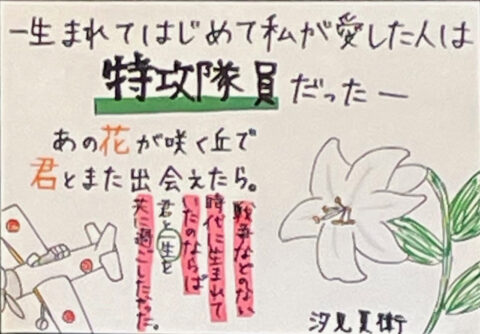 一生まれてはじめて私が愛した人は
特攻隊員だったー
あの花が咲く丘で
君とまた出会えたら。
戦争などのない
時代に生まれて
いたのならば
君と一生を
共に過ごしたかった。
汐見夏衛